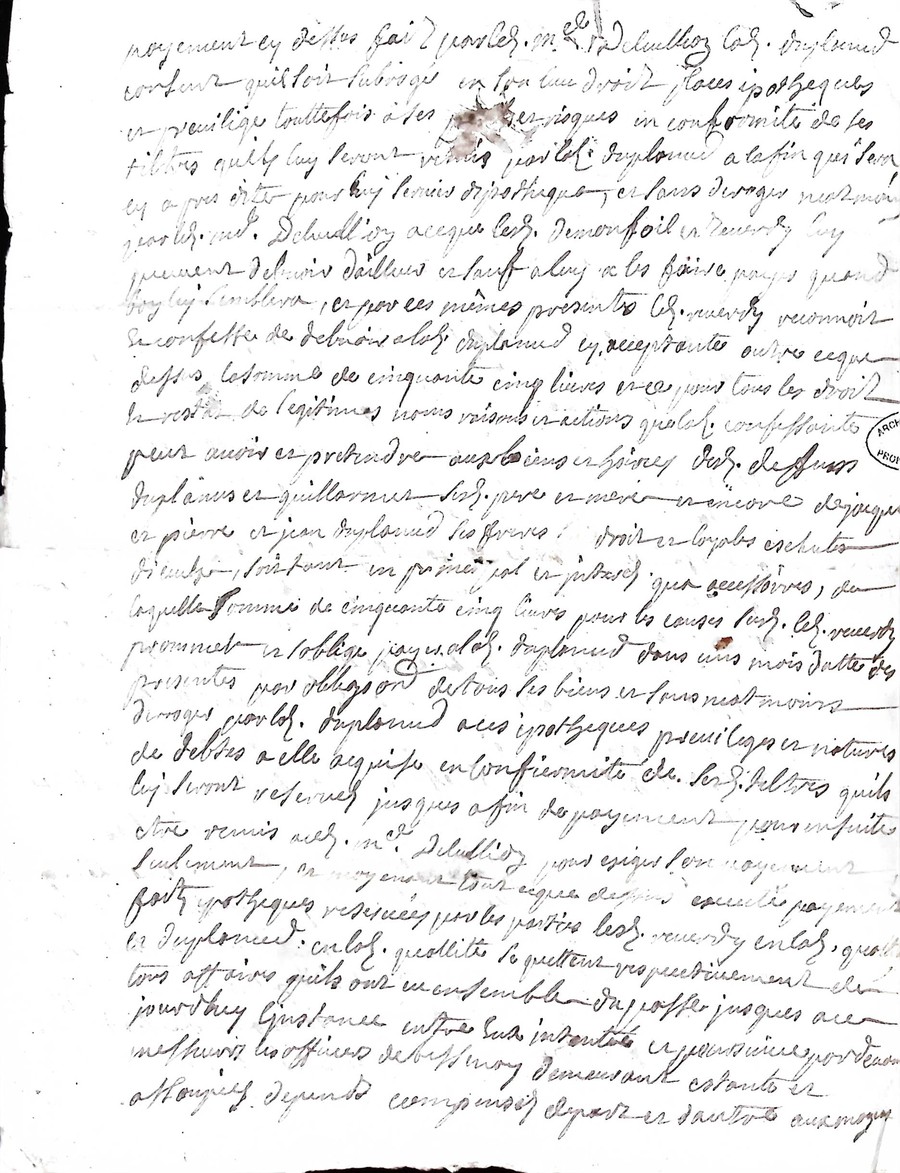 payement cy dessus fait par led. m.re Delullioz lad. duplanud
consent quil soit subrogé en son lieu droit places ipotheques
et preuilige touttefois a ses et risques en conformité de ses
tiltres quils luy seront remis par lad. duplanud a la fin qui sera
cy apres dite pour luy seruir dipotheque, et sans deroger neatmoin
par led. m.re Delullioz a ceque lesd. demonfoil et reuerdy luy
peuuent debuoir dailleur et sauf a luy a les faire payer quand
luy semblera, et par ces mêmes presentes led. reuerdy reconnoit
et confesse de debuoir a lad. duplanud cy acceptante outre ceque
dessus la somme de cinquante cinq liures et ce pour tous les droit
et de legitimes noms raisons et actions que lad. confessante
peut auoir et pretendre aux biens et hoiries desd. deffuns
duplanus et guillarmet sesd. pere et mere et encore de jacque
et pierre et jean duplanud ses freres droit et loyales eschutes
dicculx, soit tant en principal et interest que accessoires, de
laquelle somme de cinquante cinq liures pour les causes susd. led. reuerdy
promet et soblige payer a lad. duplanud dans uns mois datté des
presentes par obligaon de tous ses biens et sans neatmoins
deroger par lad. duplanud a ces ipotheques preuileges et natures
de debtes a elle acquise en confiormité de. sesd. tiltres quils
luy seront reserues jusques a fin de payement pour ensuitte
etre remis aud. m.re Delullioz pour exiger son payement
seulement, et moyenant tout ceque dessus executé payement
fait ipotheques reseruées par les parties lesd. reuerdy en lad. qualité
et duplanud. en lad. quallitté se quittent respectiuement de
tous affaires quils ont eu ensemble du passe jusques a ce
jourdhuy linstance entre eux intentée et poursuiuie par deuant
messieurs les officiers de demeurant estainte et
assoupies depends compensés depart et dautre aux moyens